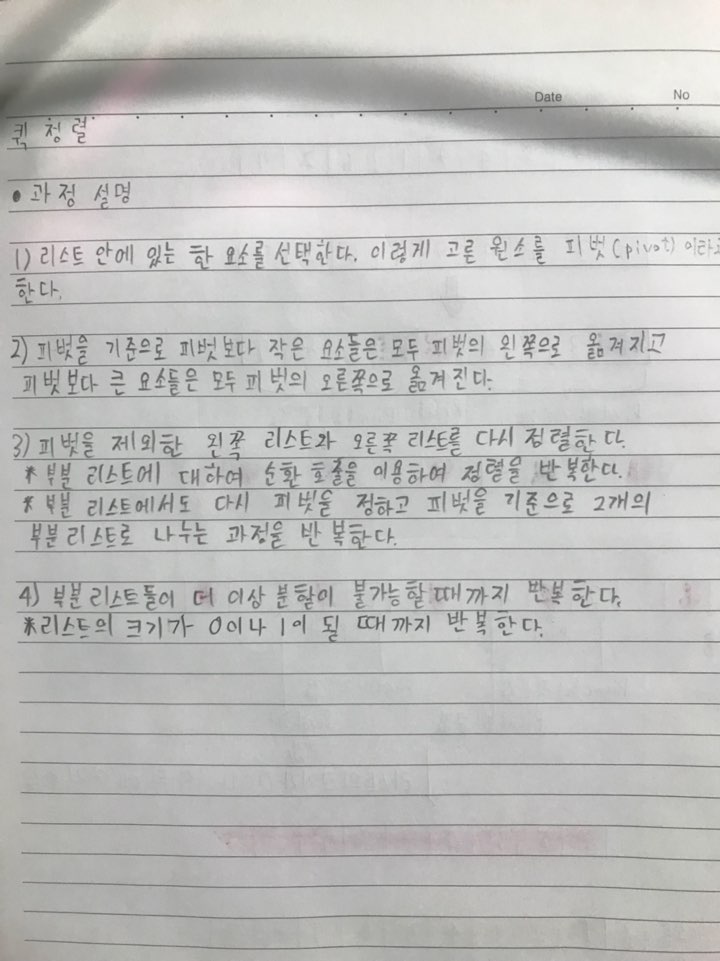 Date No
퀵 정렬
• 과정 설명
1) 리스트 안에 있는 한 요소를 선택한다. 이렇게 고른 원소를 피벗(pivot) 이라고
한다.
2) 피벗을 기준으로 피벗보다 작은 요소들은 모두 피벗의 왼쪽으로 옮겨지고
피벗보다 큰 요소들은 모두 피벗의 오른쪽으로 옮겨진다.
3) 피벗을 제외한 왼쪽 리스트와 오른쪽 리스트를 다시 정렬한다.
* 부분 리스트에 대하여 순환 호출을 이용하여 정렬을 반복한다.
* 부분 리스트에서도 다시 피벗을 정하고 피벗을 기준으로 2개의
부분리스트로 나누는 과정을 반복한다.
4) 부분리스트들이 더 이상 분할이 불가능할 때까지 반복한다.
*리스트의 크기가 0이나 1이 될 때까지 반복한다.